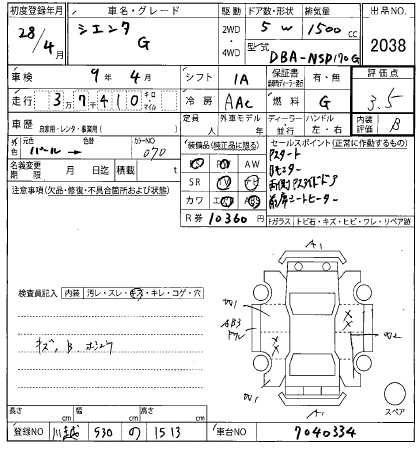 初度登録年月 車名・グレード 駆動 ドア数・形状 排気量 出品NO.
28/4月 シエンタ G 2WD・4WD 5W 1500cc 2038
型式 DBA-NSP170G
車検 9年4月 シフト IA 保証書 有・無 評価点
走行 3万7千410 キロ マイル 冷房 AAC 燃料 G 3.5
車歴 自家用・レンタ・事業用( ) 定員 人 外車モデル 年 ディーラー・並行 ハンドル 左・右 内装評価 B
外色 元色 パール 色替→ カラーNO 070
装備品(純正品に限る) セールスポイント(正常に作動するもの)
名義変更期限 月 日迄 積載 t
AW
SR TV ナビ
カワ
Pスタート
Bモニター
両側パワースライドドア
前席シートヒーター
R券 10360円
注意事項(欠品・修復・不具合箇所および状態)
Fガラス トビ石・キズ・ヒビ・ワレ・リペア跡
検査員記入 内装 汚レ・スレ・キズ・キレ・コゲ・穴
キズ、B、
A1
W1
AB3
W2
W1
A1
スペア
長さ cm 幅 cm 高さ cm
登録NO 川越 530 の 1513 車台NO 7040334